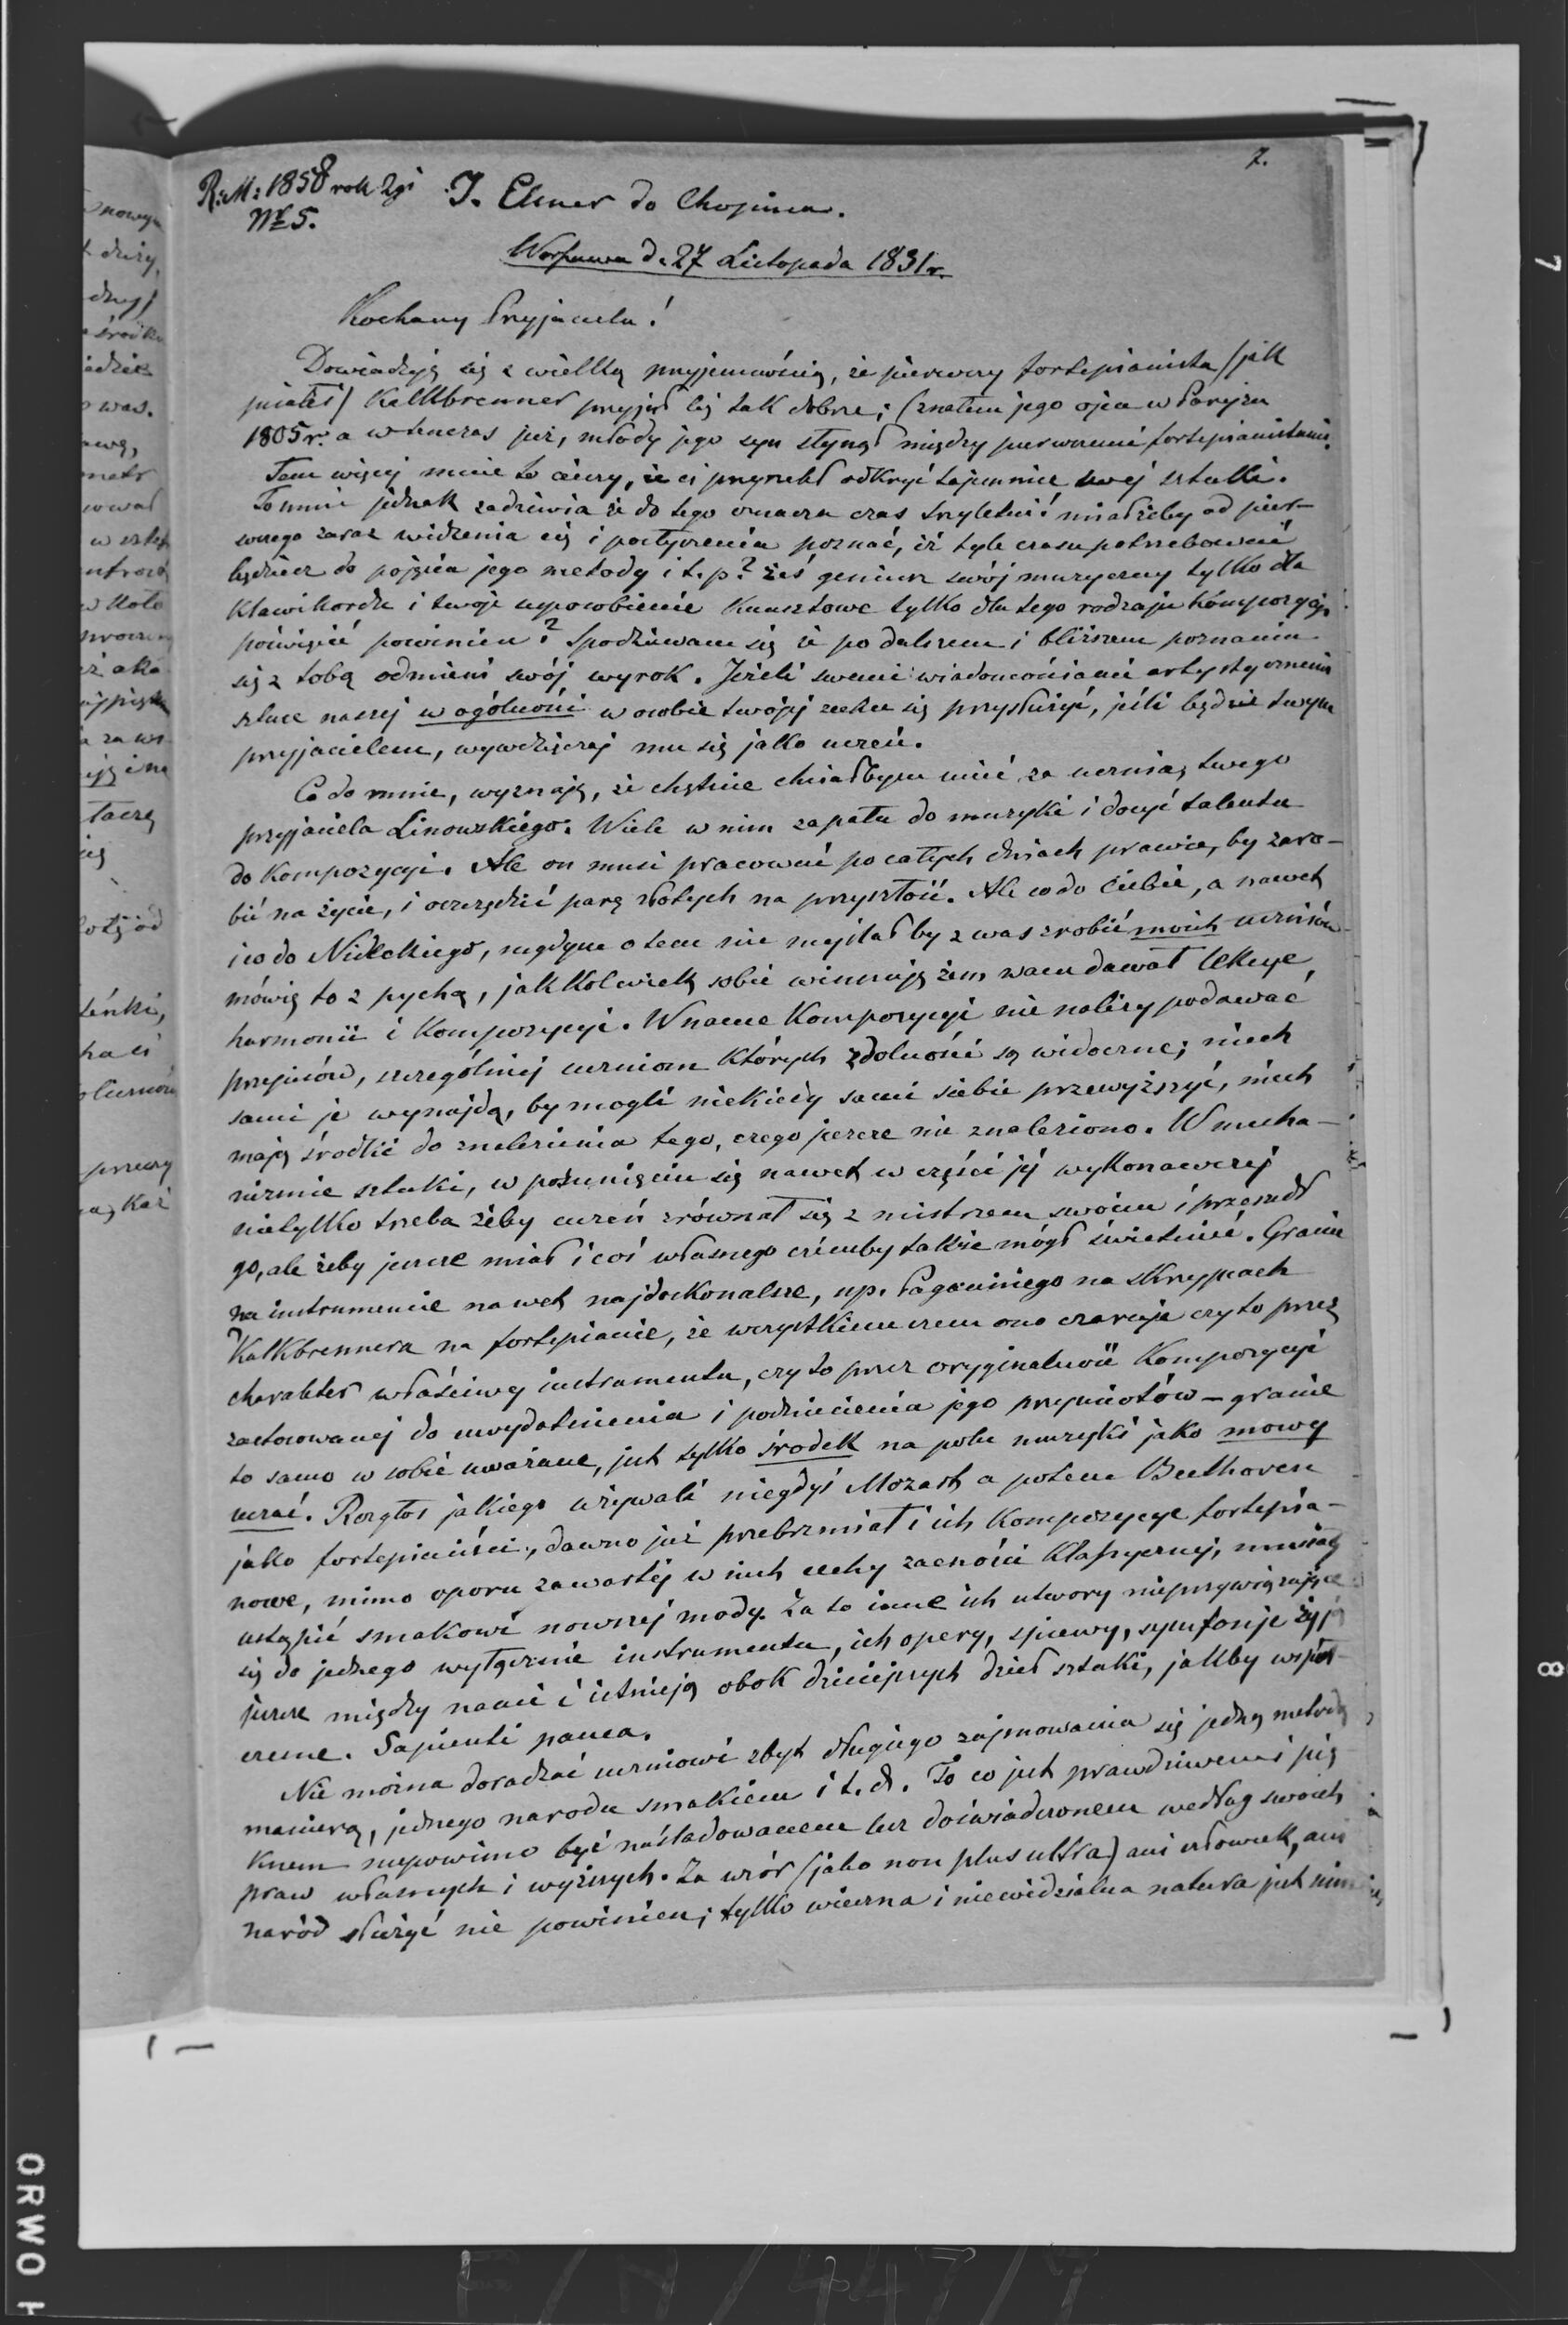 7.
R: M: 1858 rok 2gi
№ 5.
J. Elsner do Chopina.
Warszawa d. 27 Listopada 1831 r.
Kochany Przyjacielu!
Dowiaduję się z wielką przyjemnością, że pierwszy fortepianista (jak
piszesz) Kalkbrenner przyjął cię tak dobrze; (znałem jego ojca w Paryżu
1805 r. a wtenczas już, młody jego syn słynął między pierwszemi fortepianistami.
Tem więcej mnie to cieszy, że ci przyrzekł odkryć tajemnice swej sztuki.
To mnie jednak zadziwia że do tego oznacza czas trzyletni! miałżeby od pierw-
szego zaraz widzenia cię i posłyszenia poznać, iż tyle czasu potrzebować
będziesz do pojęcia jego metody i t. p? żeś geniusz swój muzyczny tylko dla
Klawikordu i twoje usposobienie Kunsztowe tylko dla tego rodzaju Kompozycji
poświęcić powinien? Spodziewam się że po dalszem i bliższem poznaniu
się z tobą odmieni swój wyrok. Jeżeli swemi wiadomościami artystycznemi
sztuce naszej w ogólności w osobie twojej zechce się przysłużyć, jeśli będzie twym
przyjacielem, wywdzięczaj mu się jako uczeń.
Co do mnie, wyznaję, że chętnie chciałbym mieć za ucznia, twego
przyjaciela Linowskiego. Wiele w nim zapału do muzyki i dosyć talentu
do Kompozycyi. Ale on musi pracować po całych dniach prawie, by zaro-
bić na życie, i oszczędzić parę złotych na przyszłość. Ale co do Ciebie, a nawet
i co do Nideckiego, nigdym o tem nie myślał by z was zrobić moich uczniów
mówię to z pychą, jakkolwiek sobie winszuję żem wam dawał lekcye,
harmonii i Kompozycyi. W nauce Kompozycyi nie należy podawać
przepisów, szczególniej uczniom których zdolności są widoczne; niech
sami je wynajdą, by mogli niekiedy sami siebie przewyższyć, niech
mają środki do znalezienia tego, czego jeszcze nie znaleziono. W mecha-
nizmie sztuki, w posunięciu się nawet w części jej wykonawczej
nietylko trzeba żeby uczeń zrównał się z mistrzem swoim i przeszedł
go, ale żeby jeszcze miał i coś własnego czémby także mógł świetnieć. Granie
na instrumencie nawet najdoskonalsze, np. Paganiniego na skrzypcach
Kalkbrennera na fortepianie, ze wszystkiem czem ono czaruje czy to przez
charakter właściwy instrumentu, czy to przez oryginalność Kompozycyi
zastosowanej do uwydatnienia i podniecienia jego przymiotów – granie
to samo w sobie uważane, jest tylko środek na polu muzyki jako mowy
uczuć. Rozgłos jakiego używali niegdyś Mozart a potem Beethoven
jako fortepianiści, dawno już przebrzmiał i ich Kompozycye fortepia-
nowe, mimo oporu zawartej w nich cechy zacności Klassycznej, musiały
ustąpić smakowi nowszej mody. Za to inne ich utwory nieprzywiązujące
się do jednego wyłącznie instrumentu, ich opery, śpiewy, symfonje żyją
jeszcze między nami i istnieją obok dzisiejszych dzieł sztuki, jakby współ-
czesne. Sapienti pauca.
Nie można doradzać uczniowi zbyt długiego zajmowania się jedną metodą
manierą, jednego narodu smakiem i t. d. To co jest prawdziwem i pię-
knem niepowinno być naśladowanem lecz doświadczonem według swoich
praw własnych i wyższych. Za wzór (jako non plus ultra) ani człowiek, ani
naród służyć nie powinien; tylko wieczna i niewidzialna natura jest nim
7
8
ORWO